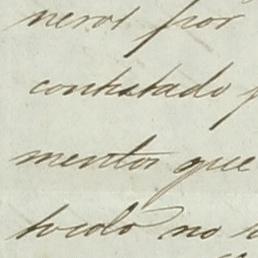 neros por
contestado p
mentos que
tocolo no